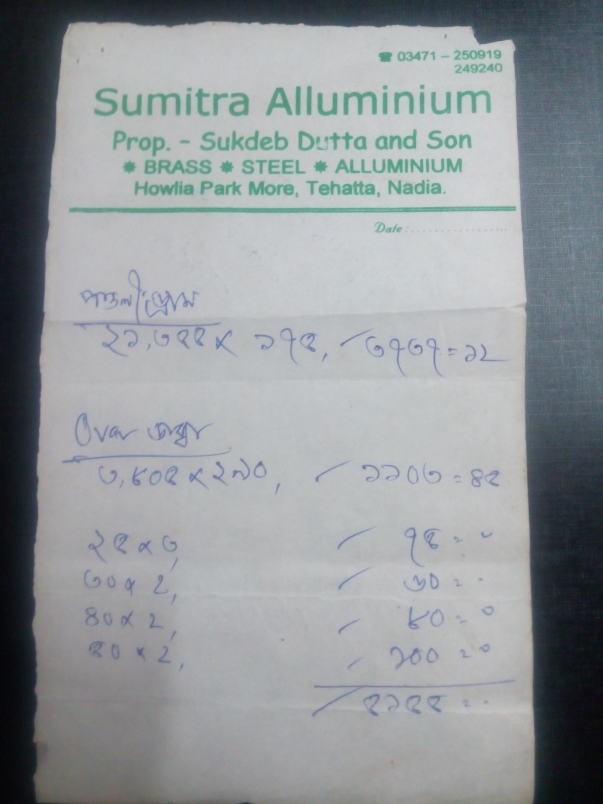 ☎ 03471 – 250919
249240
Sumitra Alluminium
Prop. - Sukdeb Dutta and Son
✸ BRASS ✸ STEEL ✸ ALLUMINIUM
Howlia Park More, Tehatta, Nadia.
Date :..................
২১.৩৫৫ × ১৭৫, / ৩৭৩৭ = ১২
৩.৮০৫ × ২৯০, / ১১০৩ = ৪৫
২৫ × ৩, / ৭৫ = ০
৩০ × ২, / ৬০ = ০
৪০ × ২, / ৮০ = ০
৫০ × ২, / ১০০ = ০
/ ৫১৫৫ = ..